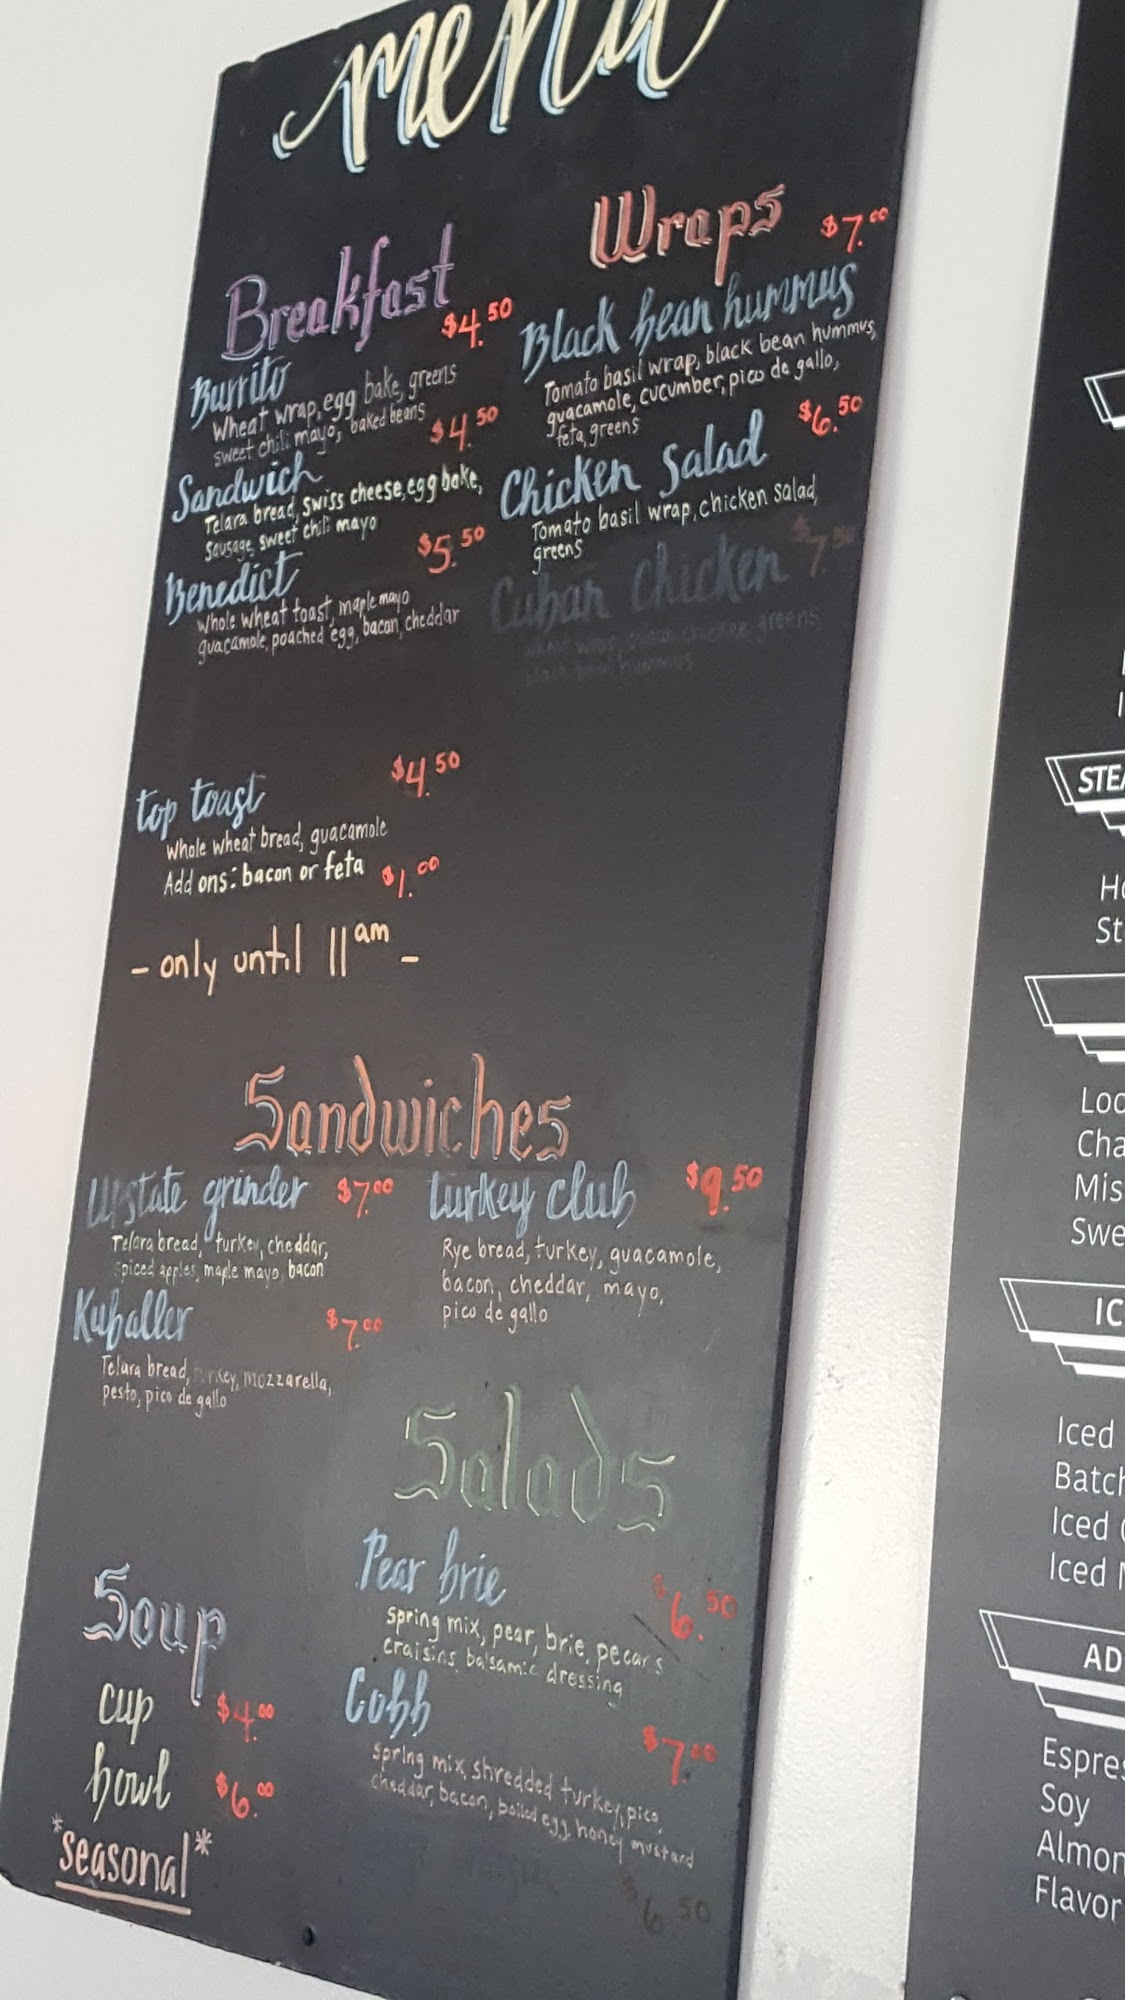 menu
Breakfast
Burrito $4.50
Wheat wrap, egg bake, greens
sweet chili mayo, baked beans
Sandwich $4.50
Telara bread, swiss cheese, egg bake,
sausage, sweet chili mayo
Benedict $5.50
whole wheat toast, maple mayo
guacamole, poached egg, bacon, cheddar
top toast $4.50
whole wheat bread, guacamole
Add ons: bacon or feta $1.00
- only until 11am -
Wraps
Black bean hummus $7.00
Tomato basil wrap, black bean hummus,
guacamole, cucumber, pico de gallo,
feta, greens
Chicken Salad $6.50
Tomato basil wrap, chicken salad,
greens
Cuban Chicken $7.50
wrap, chicken, greens,
black bean hummus
Sandwiches
Upstate grinder $7.00
Telara bread, turkey, cheddar,
spiced apples, maple mayo, bacon
Kuballer $7.00
Telara bread, turkey, mozzarella,
pesto, pico de gallo
turkey club $9.50
Rye bread, turkey, guacamole,
bacon, cheddar, mayo,
pico de gallo
Salads
Pear brie $6.50
spring mix, pear, brie, pecans
craisins, balsamic dressing
Cobb $7.00
spring mix, shredded turkey, pico,
cheddar, bacon, boiled egg, honey mustard
$6.50
Soup
cup $4.00
bowl $6.00
*seasonal*
STEA
Ho
St
Loo
Cha
Mis
Swe
IC
Iced
Batch
Iced
Iced
AD
Espres
Soy
Almon
Flavor